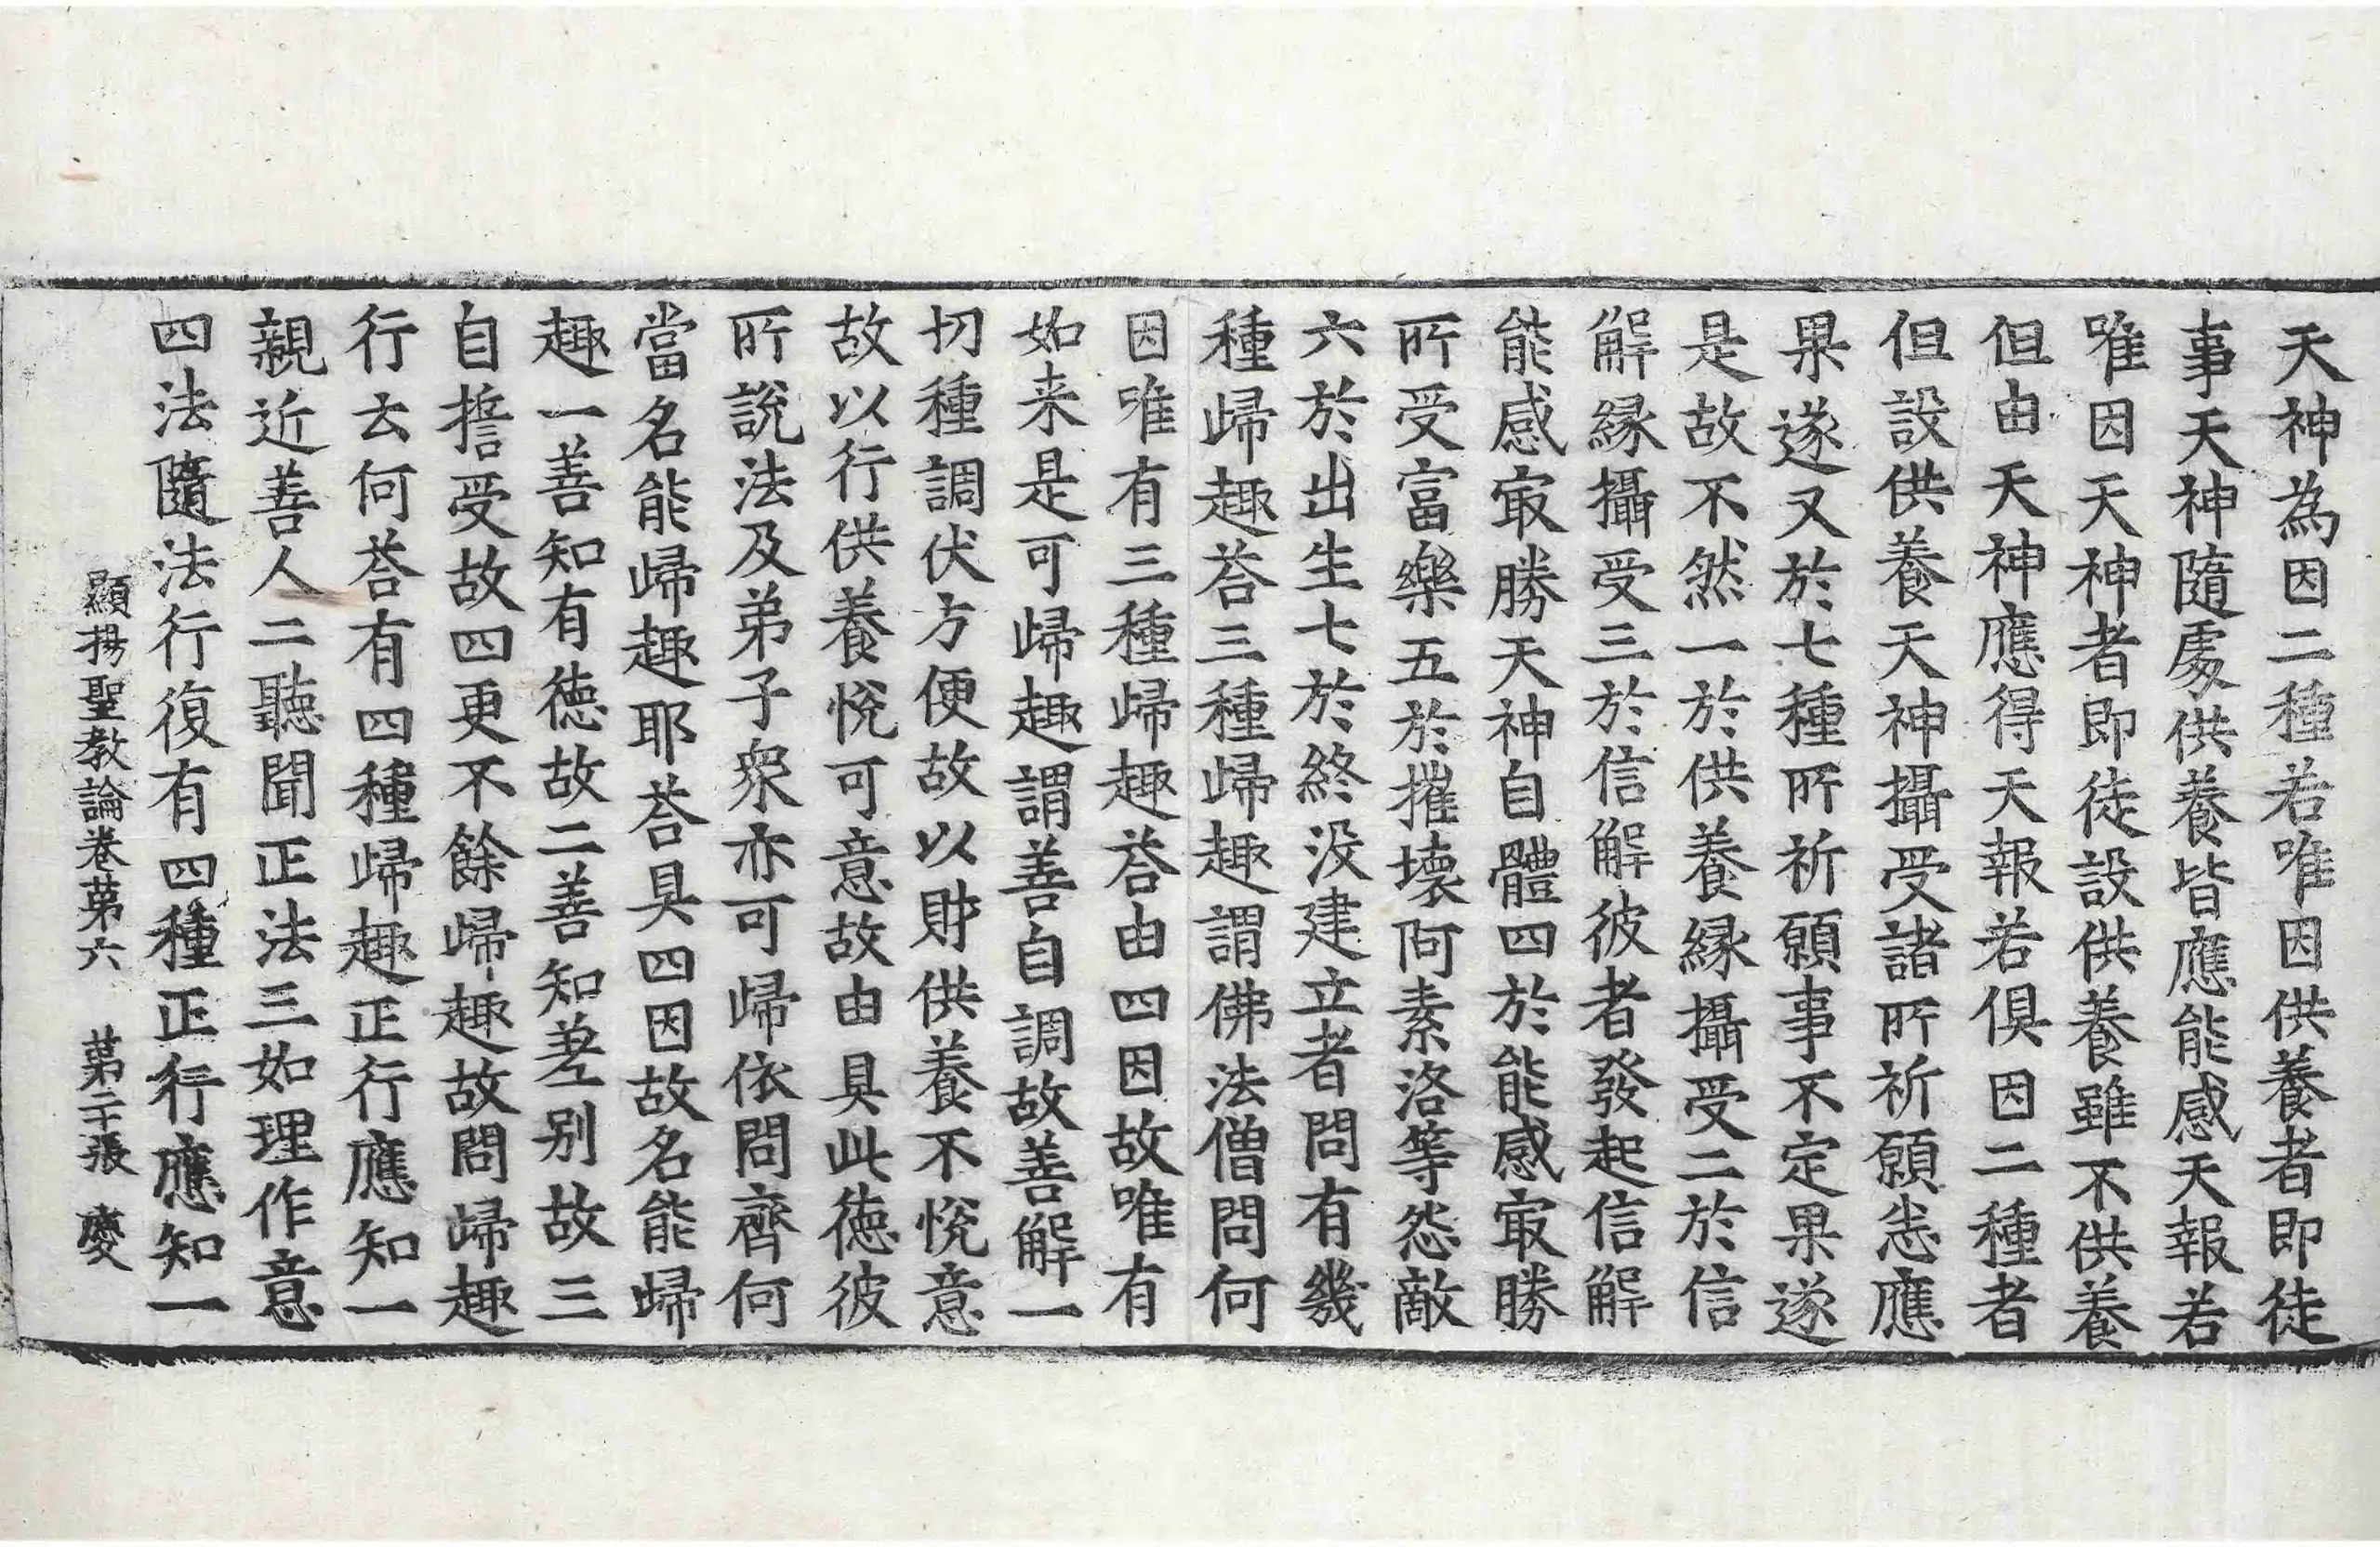 天神為因二種若唯因供養者即徒
事天神隨處供養皆應能感天報若
唯因天神者即徒設供養雖不供養
但由天神應得天報若俱因二種者
但設供養天神攝受諸所祈願恙應
果遂又於七種所祈願事不定果遂
是故不然一於供養縁攝受二於信
解縁攝受三於信解彼者發起信解
能感㝡勝天神自體四於能感㝡勝
所受富樂五於摧壞阿素洛等怨敵
六於出生七於終没建立者問有幾
種歸趣荅三種歸趣謂佛法僧問何
因唯有三種歸趣荅由四因故唯有
如来是可歸趣謂善自調故善解一
切種調伏方便故以財供養不悅意
故以行供養悅可意故由具此徳彼
所說法及弟子衆亦可歸依問齊何
當名能歸趣耶荅具四因故名能歸
趣一善知有徳故二善知差别故三
自誓受故四更不餘歸趣故問歸趣
行去何荅有四種歸趣正行應知一
親近善人二聽聞正法三如理作意
四法隨法行復有四種正行應知一
顯揚聖教論卷第六 第二十張 慶